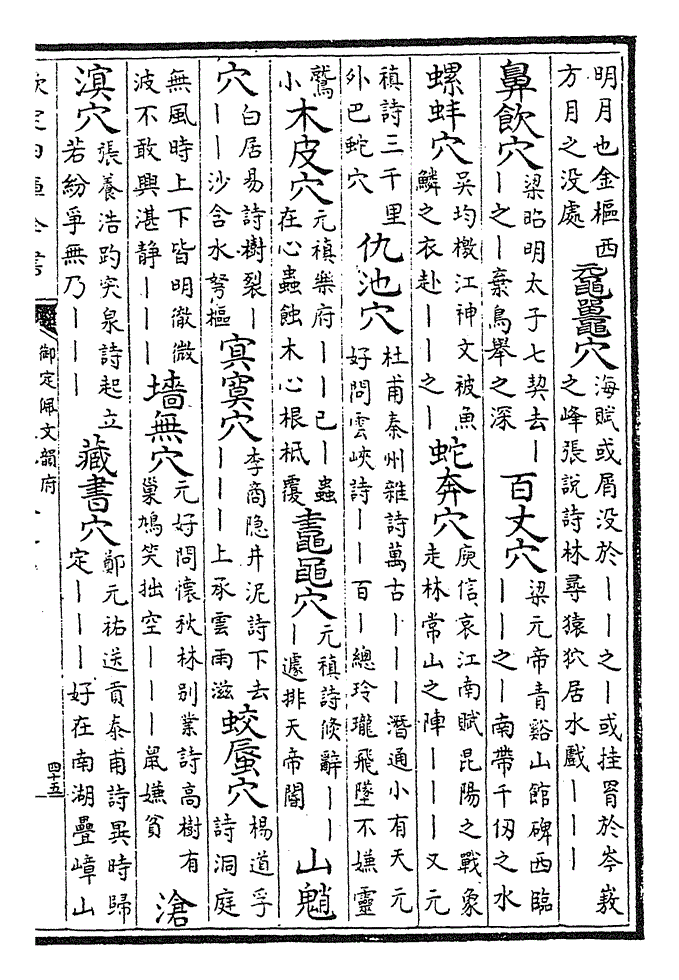 明月也金樞西
方月之没處
黿鼉穴
海賦或屑没於丨丨之丨或挂罥於岑嶅
之峰張說詩林尋猿狖居水戲丨丨丨
鼻飲穴
梁昭明太子七契去丨
丨之丨棄鳥舉之深
百丈穴
梁元帝青谿山館碑西臨
丨丨之丨南帶千仞之水
螺蚌穴
吴均檄江神文被魚
鱗之衣赴丨丨之丨
蛇奔穴
庾信哀江南賦昆陽之戰象
走林常山之陣丨丨丨又元
稹詩三千里
外巴蛇穴
仇池穴
杜甫秦州雜詩萬古丨丨丨潛通小有天元
好問雲峽詩丨丨百丨總玲瓏飛墜不嫌靈
鷲
小
木皮穴
元稹樂府丨丨已丨蟲
在心蟲蝕木心根柢覆
鼃黽穴
元稹詩倐辭丨丨
丨遽排天帝閽
山魈
穴
白居易詩樹裂丨
丨丨沙含水弩樞
㝠寞穴
李商隐井泥詩下去
丨丨丨上承雲雨滋
蛟蜃穴
楊道孚
詩洞庭
無風時上下皆明徹微
波不敢興湛静丨丨丨
墻無穴
元好問懷秋林别業詩高樹有
巢鳩笑拙空丨丨丨鼠嫌貧
滄
溟穴
張養浩趵突泉詩起立
若紛爭無乃丨丨丨
藏書穴
鄭元祐送貢泰甫詩異時歸
定丨丨丨好在南湖疊嶂山
欽定四庫全書
御定佩文韻府
四十五